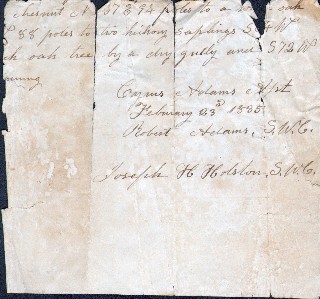 chesnut N 57 E 94 poles to a oak
88 poles to two hickory saplings S
oak tree by a dry gully and S 72 W
Cyrus Adams Asst
February 23d 1825
Robert Adams, S.W.C.
Joseph H Holston, S.W.C.